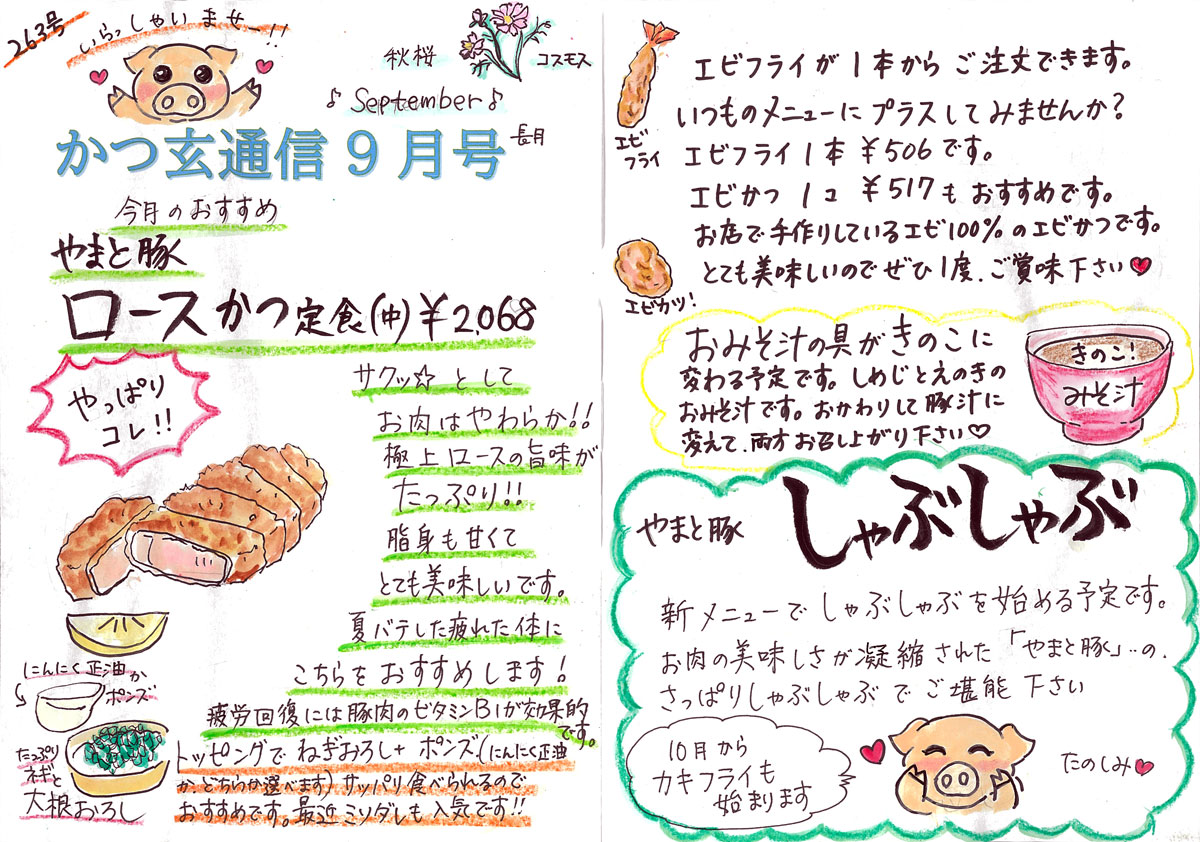 263号
いらっしゃいませー!!
秋桜
コスモス
♪ September ♪
かつ玄通信9月号
長月
今月のおすすめ
やまと豚
ロースかつ定食(中)¥2,068
やっぱり
コレ!!
サクッ☆として
お肉はやわらか!!
極上ロースの旨味が
たっぷり!!
脂身も甘くて
とても美味しいです。
夏バテした疲れた体に
こちらをおすすめします!
疲労回復には豚肉のビタミンB1が効果的
です。
にんにく正油か
ポンズ
たっぷり
ネギと
大根おろし
トッピングでねぎおろし+ポンズ(にんにく正油
かどちらか選べます)サッパリ食べられるので
おすすめです。最近ミソダレも人気です!!
エビ
フライ
エビフライが1本からご注文できます。
いつものメニューにプラスしてみませんか?
エビフライ1本¥506です。
エビかつ1コ¥517もおすすめです。
お店で手作りしているエビ100%のエビかつです。
とても美味しいのでぜひ1度、ご賞味下さい♥
エビカツ!
おみそ汁の具がきのこに
変わる予定です。しめじとえのきの
おみそ汁です。おかわりして豚汁に
変えて、両方お召し上がり下さい♡
きのこ!
みそ汁
やまと豚
しゃぶしゃぶ
新メニューでしゃぶしゃぶを始める予定です。
お肉の美味しさが凝縮された「やまと豚」‥の、
さっぱりしゃぶしゃぶでご堪能下さい
10月から
カキフライも
始まります
たのしみ♥